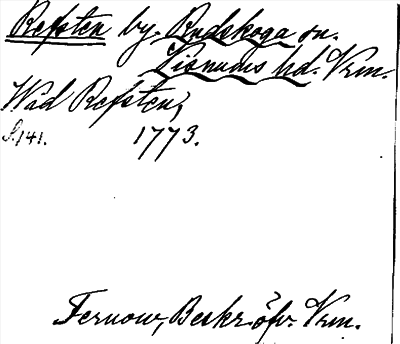 Refsten by. Rudskoga sn.
Visnums hd. Vrm.
Wid Refsten,
S. 141. 1773.
Fernow, Beskr. öfv. Vrm.